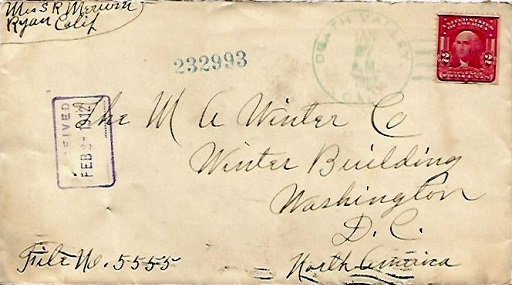 Mrs S R Merwin
Ryan Calif
232993
DEATH VALLEY
JAN
27
A.M.
CAL
UNITED STATES
OF AMERICA
2 2
RECEIVED
FEB 2-1912
The M A Winter Co
Winter Building
Washington
D.C.
North America
File No. 5555